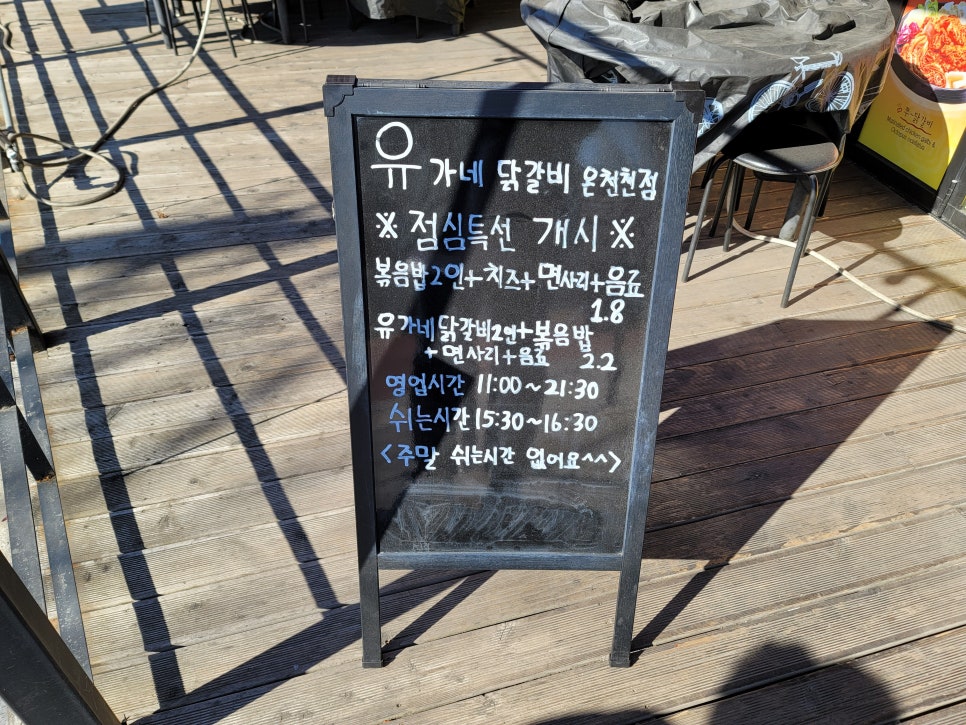 유가네 닭갈비 온천천점
※ 점심특선 개시 ※
볶음밥2인+치즈+면사리+음료
1.8
유가네닭갈비2인+볶음밥
+면사리+음료 2.2
영업시간 11:00~21:30
쉬는시간 15:30~16:30
<주말 쉬는시간 없어요^^>